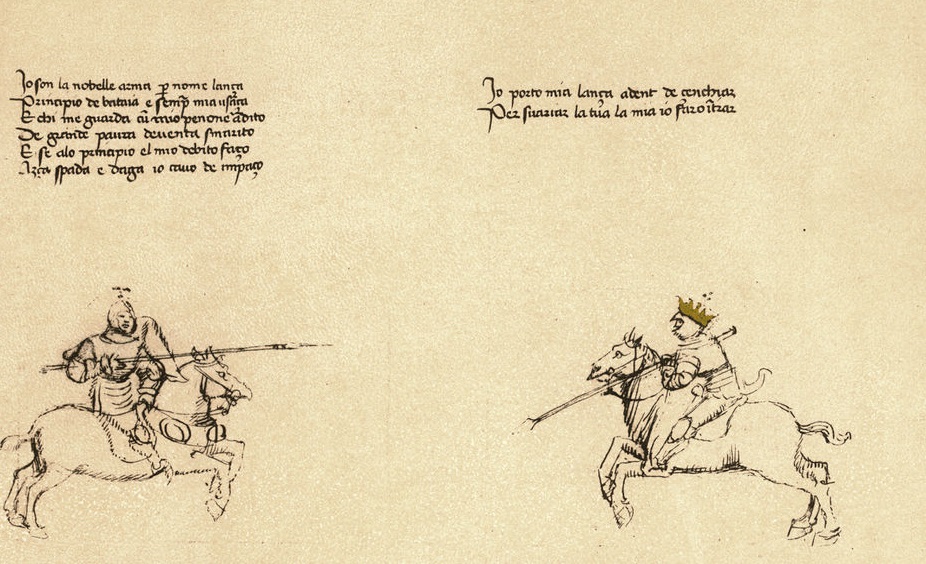 Io son la nobelle arma p nome lança
Principio de bataia e semp mia usāça
E chi me guarda cū mio penone adito
De grande paura deventa smarito
E se alo principio el mio debito faço
Azça spada e daga io cavo de impaço
Io porto mia lança a dent de cenchiar
Per suariar la tua la mia io faro